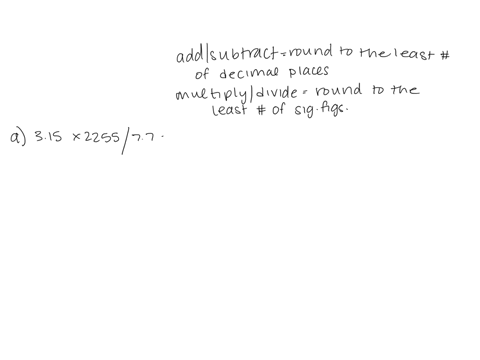 add/subtract = round to the least #
of decimal places
multiply/divide = round to the
least # of sig. figs.
a) 3.15 × 2255/7.7